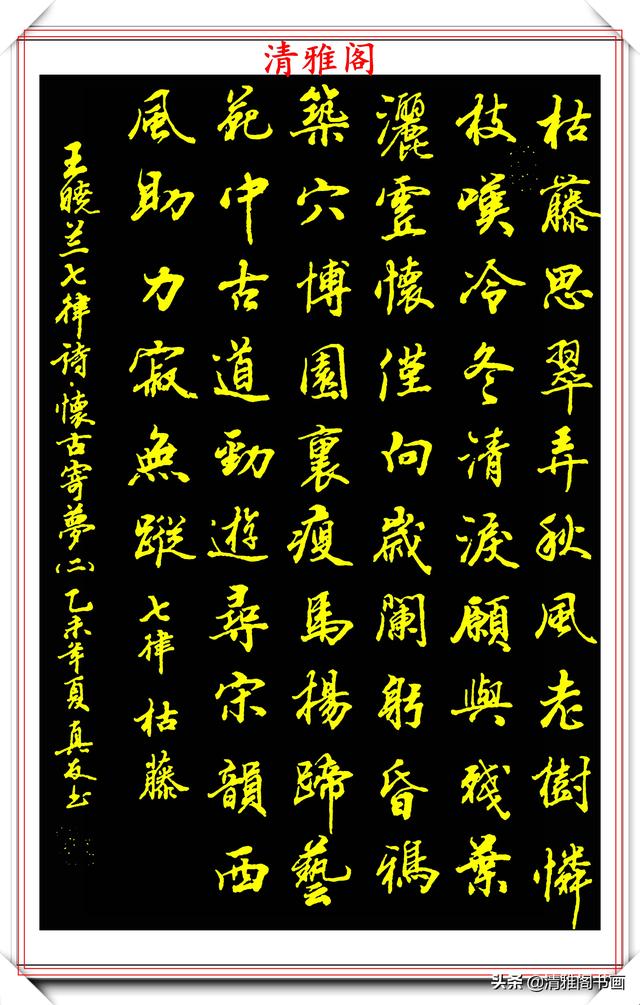 清雅阁
枯藤思翠弄秋風老樹憐
枝嘆冷冬清淚願與殘葉
灑靈懷僅向歲闌躬昏鴉
築穴博園裏瘦馬揚蹄藝
苑中古道勁遊尋宋韻西
風助力寂無蹤 七律 枯藤
王曉兰七律詩·懷古寄夢(二)乙未年夏真友书
头条@清雅阁书画